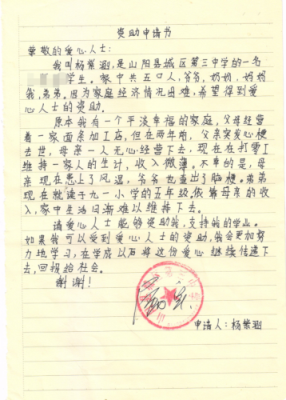 资助申请书
尊敬的爱心人士:
我叫杨紫涵,是山阳县城区第三中学的一名
学生。家中共五口人,爷爷、奶奶、妈妈
我、弟弟,因为家庭经济情况困难,希望得到爱
心人士的资助。
原本我有一个平淡幸福的家庭,父母经营
着一家面条加工店,但在两年前,父亲突发心梗
去世,母亲一人无心经营下去,现在在打零工
维持一家人的生计,收入微薄。不幸的是,母
亲现在患上了风湿,爷爷也查出了脑梗。弟弟
现在就读于九一小学的五年级,依靠母亲的收
入,家中生活日渐难以维持下去。
请爱心人士能够资助我,支持我的学业。
如果我可以受到爱心人士的资助,我会更加努
力地学习,在学成以后将这份爱心继续传递下
去,回报给社会。
谢谢!
申请人:杨紫涵